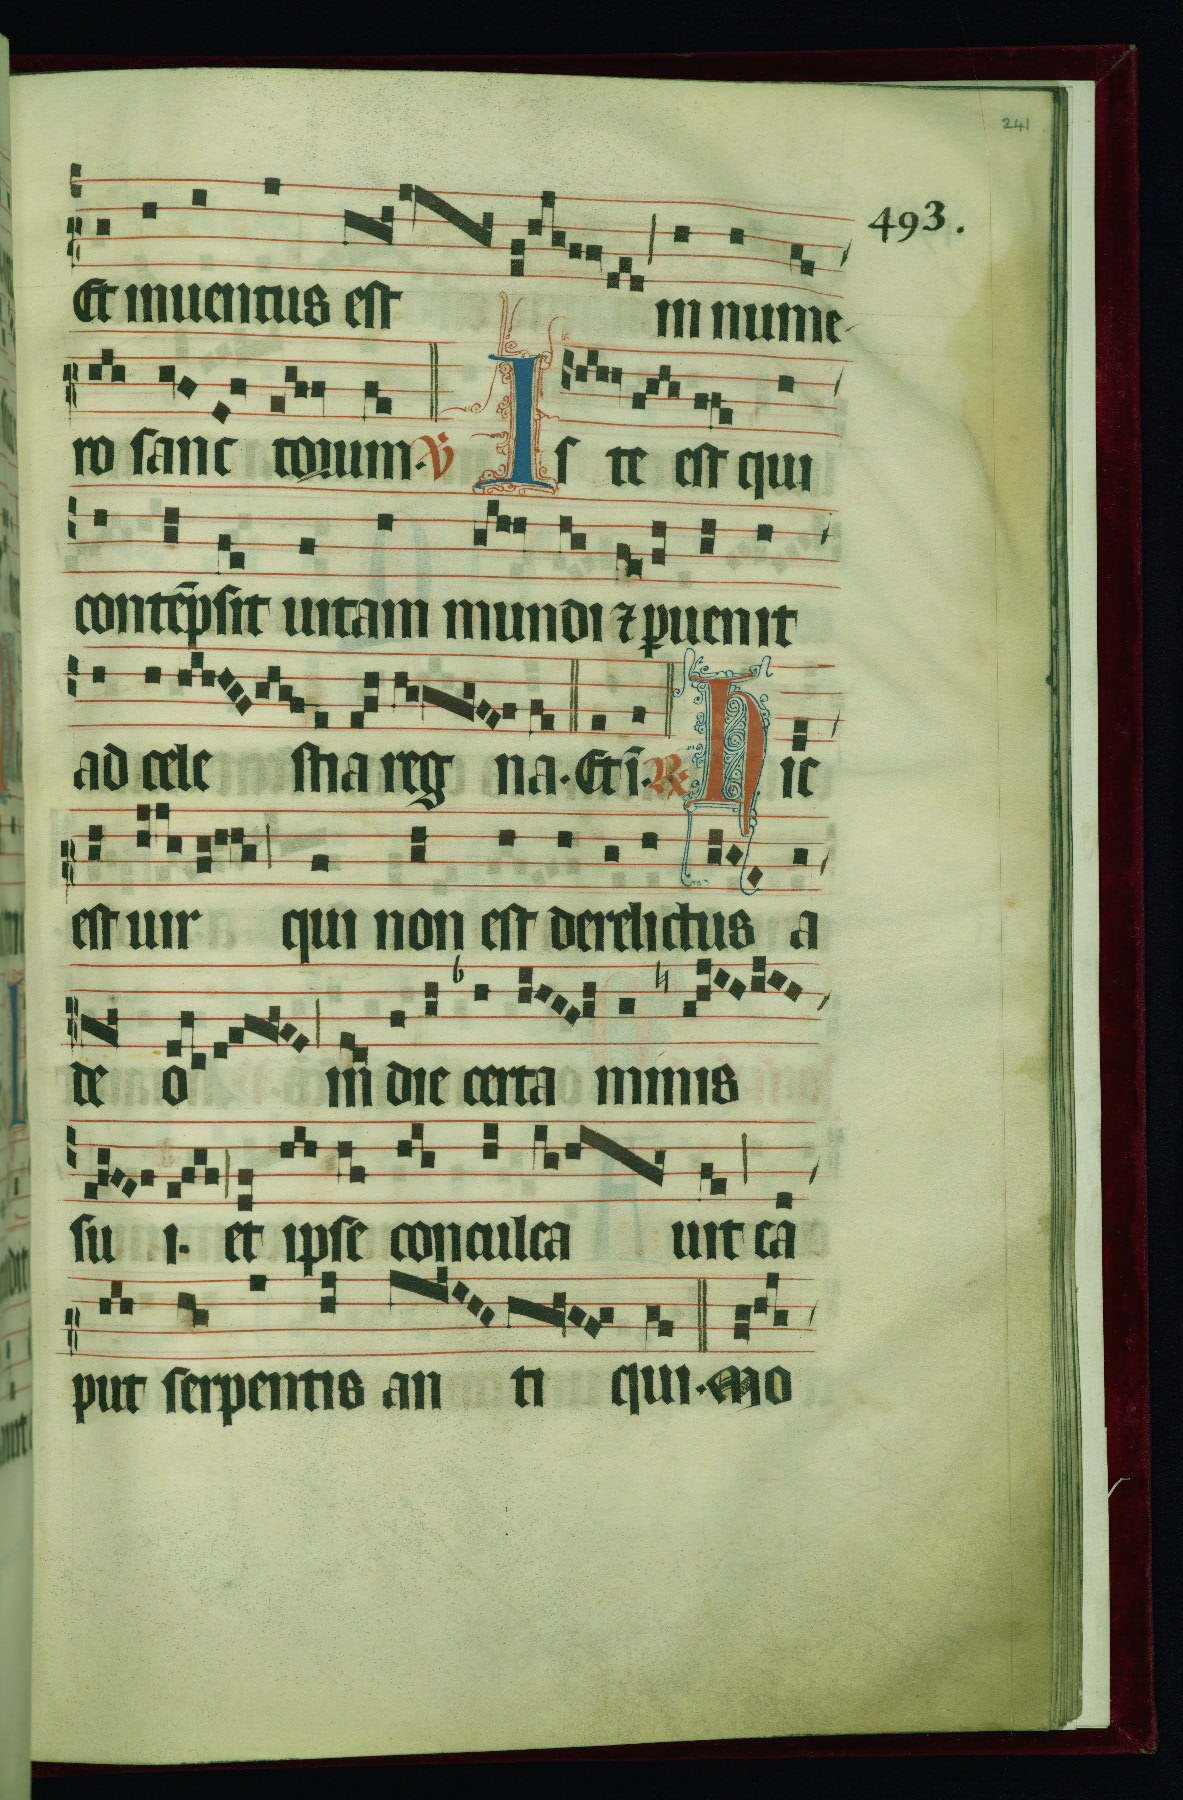 241
493.
Et inuentus est in nume
ro sanc torum. ℣ Is te est qui
contēpsit uitam mundi ⁊ ꝑuenit
ad cele stia reg na. Et ī. ℟ Hic
est uir qui non est derelictus a
de o in die certa minis
su i. et ipse conculca uit ca
put serpentis an ti qui. mo